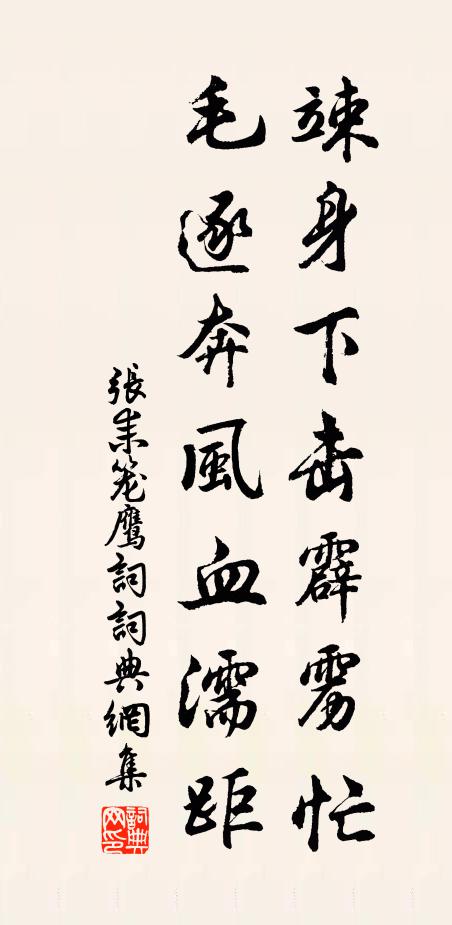 竦身下击霹雳忙
毛逐奔風血濡距
張耒笼鹰詞詞典網集
詞典网印